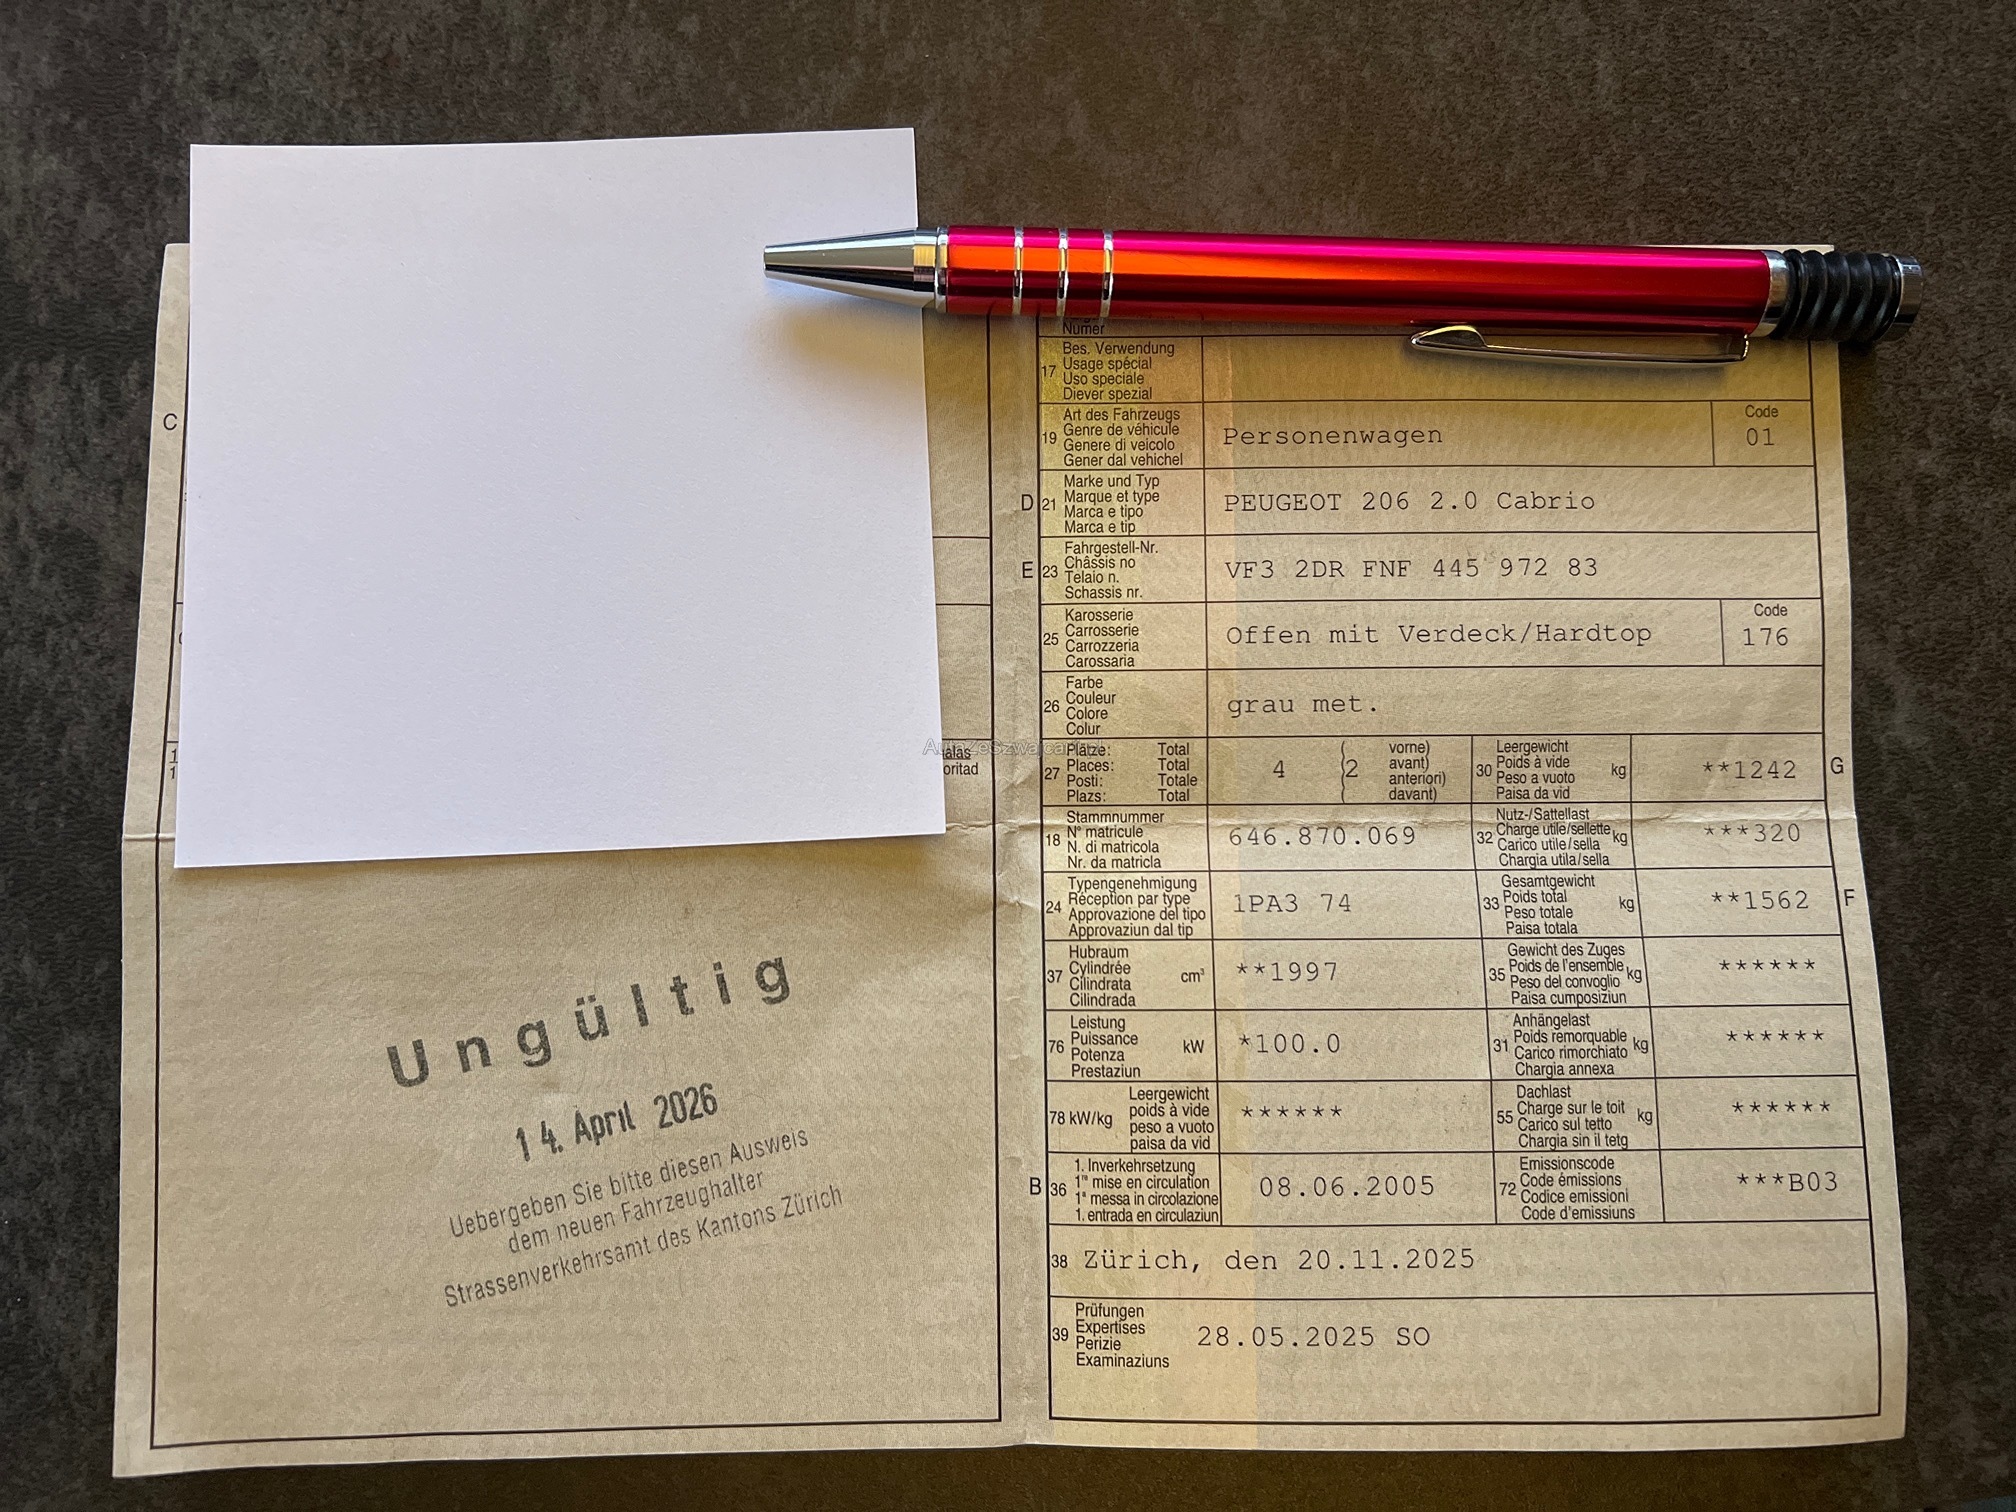 C
1
1
alas
oritad
Ungültig
14. April 2026
Uebergeben Sie bitte diesen Ausweis
dem neuen Fahrzeughalter
Strassenverkehrsamt des Kantons Zürich
Numer
17
Bes. Verwendung
Usage spécial
Uso speciale
Diever spezial
19
Art des Fahrzeugs
Genre de véhicule
Genere di veicolo
Gener dal vehichel
Personenwagen
Code
01
D
21
Marke und Typ
Marque et type
Marca e tipo
Marca e tip
PEUGEOT 206 2.0 Cabrio
E
23
Fahrgestell-Nr.
Châssis no
Telaio n.
Schassis nr.
VF3 2DR FNF 445 972 83
25
Karosserie
Carrosserie
Carrozzeria
Carossaria
Offen mit Verdeck/Hardtop
Code
176
26
Farbe
Couleur
Colore
Colur
grau met.
AutaZeSzwajcarii.pl
27
Plätze: Total
Places: Total
Posti: Totale
Plazs: Total
4 (2 vorne)
avant)
anteriori)
davant)
30
Leergewicht
Poids à vide
Peso a vuoto
Paisa da vid
kg
**1242
G
18
Stammnummer
N° matricule
N. di matricola
Nr. da matricla
646.870.069
32
Nutz-/Sattellast
Charge utile/sellette
Carico utile/sella
Chargia utila/sella
kg
***320
24
Typengenehmigung
Réception par type
Approvazione del tipo
Approvaziun dal tip
1PA3 74
33
Gesamtgewicht
Poids total
Peso totale
Paisa totala
kg
**1562
F
37
Hubraum
Cylindrée
Cilindrata
Cilindrada
cm³
**1997
35
Gewicht des Zuges
Poids de l'ensemble
Peso del convoglio
Paisa cumposiziun
kg
******
76
Leistung
Puissance
Potenza
Prestaziun
kW
*100.0
31
Anhängelast
Poids remorquable
Carico rimorchiato
Chargia annexa
kg
******
78 kW/kg
Leergewicht
poids à vide
peso a vuoto
paisa da vid
******
55
Dachlast
Charge sur le toit
Carico sul tetto
Chargia sin il tetg
kg
******
B
36
1. Inverkehrsetzung
1re mise en circulation
1a messa in circolazione
1. entrada en circulaziun
08.06.2005
72
Emissionscode
Code émissions
Codice emissioni
Code d'emissiuns
***B03
38
Zürich, den 20.11.2025
39
Prüfungen
Expertises
Perizie
Examinaziuns
28.05.2025 SO